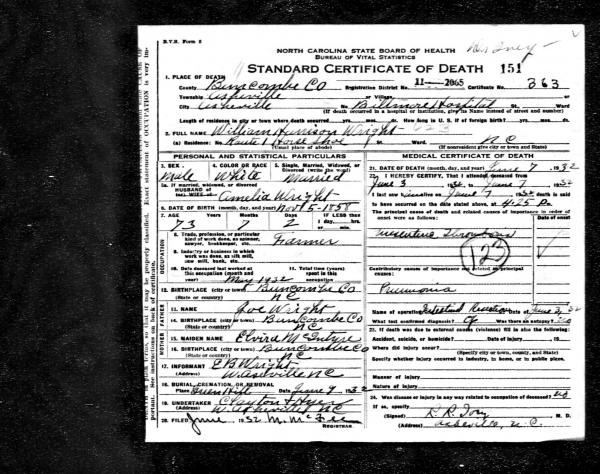 B.V.S. Form 8
NORTH CAROLINA STATE BOARD OF HEALTH
BUREAU OF VITAL STATISTICS
STANDARD CERTIFICATE OF DEATH 151
1. PLACE OF DEATH
County Buncombe Co Registration District No. 11-2065 Certificate No. 363
Township Asheville or Village
City Asheville No. Biltmore Hospital St. Ward
(If death occurred in a hospital or institution, give its Name instead of street and number)
Length of residence in city or town where death occurred yrs. mos. ds. How long in U. S. if of foreign birth? yrs. mos. ds.
2. FULL NAME William Harrison Wright 623
(a) Residence: No. Route 1 Horse Shoe St. Ward NC
(Usual place of abode)
PERSONAL AND STATISTICAL PARTICULARS
3. SEX 4. COLOR OR RACE 5. Single, Married, Widowed, or Divorced (write the word)
Male White Married
5a. If married, widowed, or divorced
HUSBAND of
(or) WIFE Amelia Wright
6. DATE OF BIRTH (month, day, and year) Nov 5-1858
7. AGE Years Months Days If LESS than 1 day, hrs. or min.
73 7 2
8. Trade, profession, or particular kind of work done, as spinner, sawyer, bookkeeper, etc. Farmer
9. Industry or business in which work was done, as silk mill, saw mill, bank, etc.
10. Date deceased last worked at this occupation (month and year) May 1932
11. Total time (years) spent in this occupation
12. BIRTHPLACE (city or town) Buncombe Co
(State or country) NC
FATHER
13. NAME Wright
14. BIRTHPLACE (city or town) Buncombe Co
(State or country) NC
MOTHER
15. MAIDEN NAME Elvira McEntyre
16. BIRTHPLACE (city or town) Buncombe Co
(State or country) NC
17. INFORMANT E B Wright
(Address) W. Asheville NC
18. BURIAL, CREMATION, OR REMOVAL
Place Green Hill Date June 9, 1932
19. UNDERTAKER Clayton &
(Address) W. Asheville NC
20. FILED June 1932
REGISTRAR.
MEDICAL CERTIFICATE OF DEATH
21. DATE OF DEATH (month, day, and year) June 7 1932
22. I HEREBY CERTIFY, That I attended deceased from
June 3 1932 to June 7, 1932
I last saw him alive on June 7, 1932 death is said
to have occurred on the date stated above, at 4:25 P.m.
The principal cause of death and related causes of importance in order of
onset were as follows: Date of onset
Mesenteric Thrombosis
123
Contributory causes of importance not related to principal
cause:
Pneumonia
Name of operation Intestinal Resection Date of June 3, 32
What test confirmed diagnosis? Op Was there an autopsy? no
23. If death was due to external causes (violence) fill in also the following:
Accident, suicide, or homicide? Date of injury 19
Where did injury occur?
(Specify city or town, county, and State)
Specify whether injury occurred in industry, in home, or in public place.
Manner of injury
Nature of injury
24. Was disease or injury in any way related to occupation of deceased? no
If so, specify
(Signed) M. D.
(Address) Asheville, N.C.